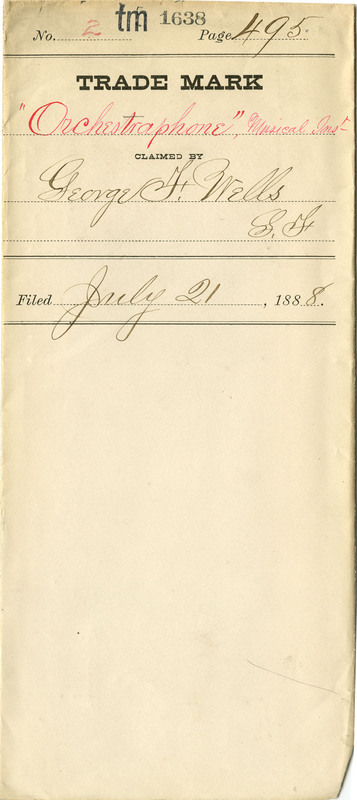 No. 2 tm 1638 Page 495.
TRADE MARK
"Orchestraphone", Musical Inst
CLAIMED BY
George F. Wells
S. F
Filed July 21, 1888.